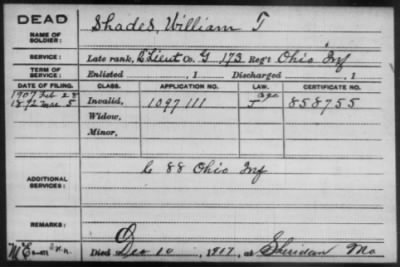 DEAD
NAME OF SOLDIER: Shades, William T
SERVICE: Late rank, 2 Lieut Co. G 173 Reg't Ohio Inf
TERM OF SERVICE: Enlisted , 1 Discharged , 1
DATE OF FILING. CLASS. APPLICATION NO. LAW. CERTIFICATE NO.
1907 Feb 28
1892 Mar 5 Invalid, 1097111 J 858755
Widow,
Minor,
ADDITIONAL SERVICES: C 88 Ohio Inf
REMARKS:
Died Dec 10, 1917, at Sheridan Mo